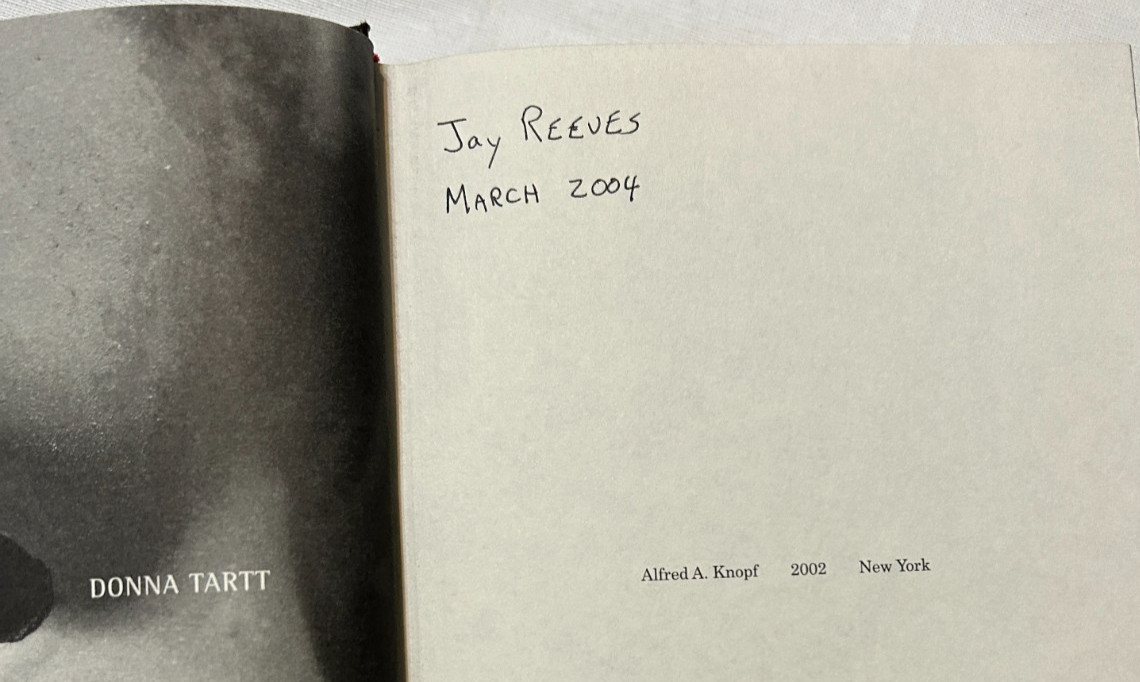 DONNA TARTT
Jay REEVES
MARCH 2004
Alfred A. Knopf 2002 New York